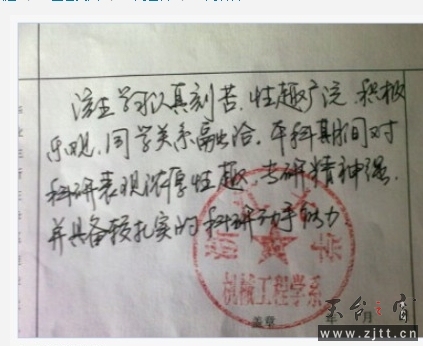 该生学习认真刻苦，性趣广泛，积极
乐观，同学关系融洽。本科期间对
科研表现浓厚性趣，专研精神强，
并具备较扎实的科研动手能力
浙
机械工程学系
盖章
年 月
玉台之窗
www.zjtt.cn